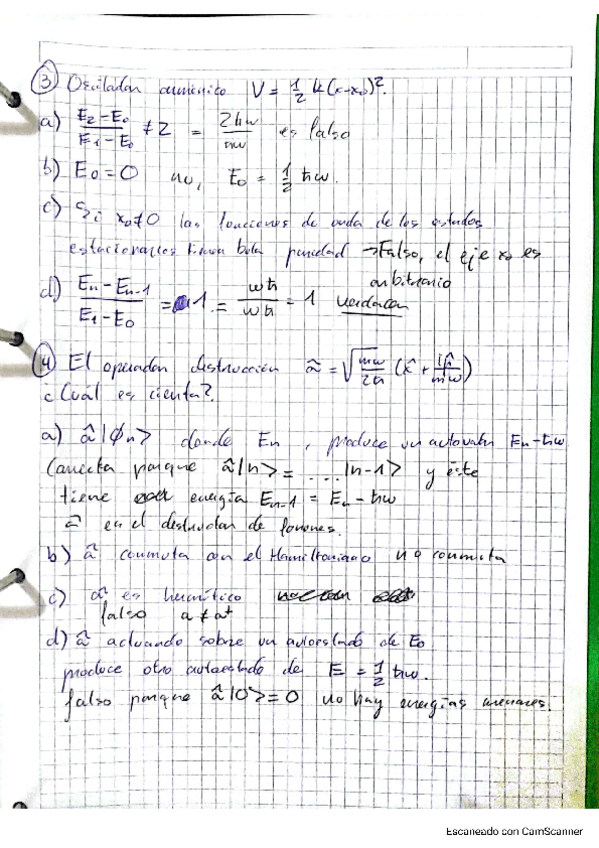 ③ Oscilador armónico V = 1/2 k(x-x₀)².
a) (E₂-E₀)/(E₁-E₀) ≠ 2 = 2ħω/ħω es falso
b) E₀ = 0 no, E₀ = 1/2 ħω.
c) Si x₀≠0 las funciones de onda de los estados
estacionarios tienen bola paridad → Falso, el eje x₀ es
arbitrario
d) (Eₙ - Eₙ₋₁)/(E₁ - E₀) = 1. = ωħ/ωħ = 1 verdadera
④ El operador destrucción â = √(mω/2ħ) (x̂ + ip̂/mω)
¿Cuál es cierta?
a) â|φn> donde En, produce un autovalor En-ħω
Correcta porque â|n> = .... |n-1> y éste
tiene energía Eₙ₋₁ = Eₙ - ħω
â es el destructor de fonones.
b) â conmuta con el Hamiltoniano no conmuta
c) â es hermítico
falso a ≠ a⁺
d) â actuando sobre un autoestado de E₀
produce otro autoestado de E = 1/2 ħω.
falso porque â|0> = 0 no hay energías menores.
Escaneado con CamScanner